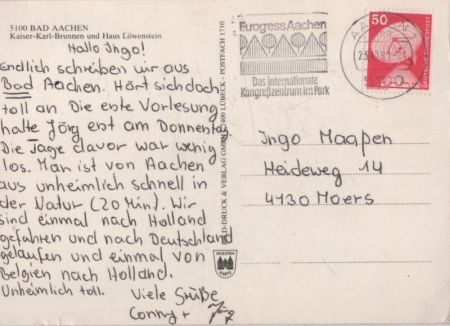 5100 BAD AACHEN
Kaiser-Karl-Brunnen und Haus Löwenstein
Hallo Ingo!
Endlich schreiben wir aus
Bad Aachen. Hört sich doch
toll an. Die erste Vorlesung
hatte Jörg erst am Donnerstag.
Die Tage davor war wenig
los. Man ist von Aachen
aus unheimlich schnell in
der Natur (20 Min). Wir
sind einmal nach Holland
gefahren und nach Deutschland
gelaufen und einmal von
Belgien nach Holland.
Unheimlich toll.
Viele Grüße
Conny + Jörg
BILD-DRUCK & VERLAG GMBH 2400 LÜBECK · POSTFACH 1710
Eurogress Aachen
Das internationale
Kongreßzentrum im Park
50
DEUTSCHE BUNDESPOST
Ingo Maapen
Heideweg 14
4130 Moers